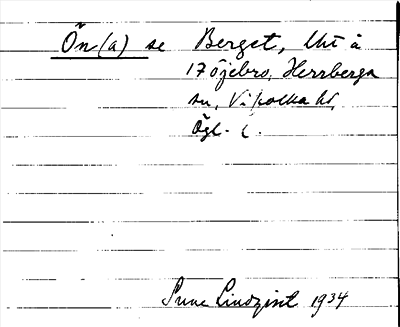 Ön(a) se Berget, Urt å
17 Öjebro, Herrberga
sn, Vifolka hd,
Ögl.
Sune Lindqvist 1934